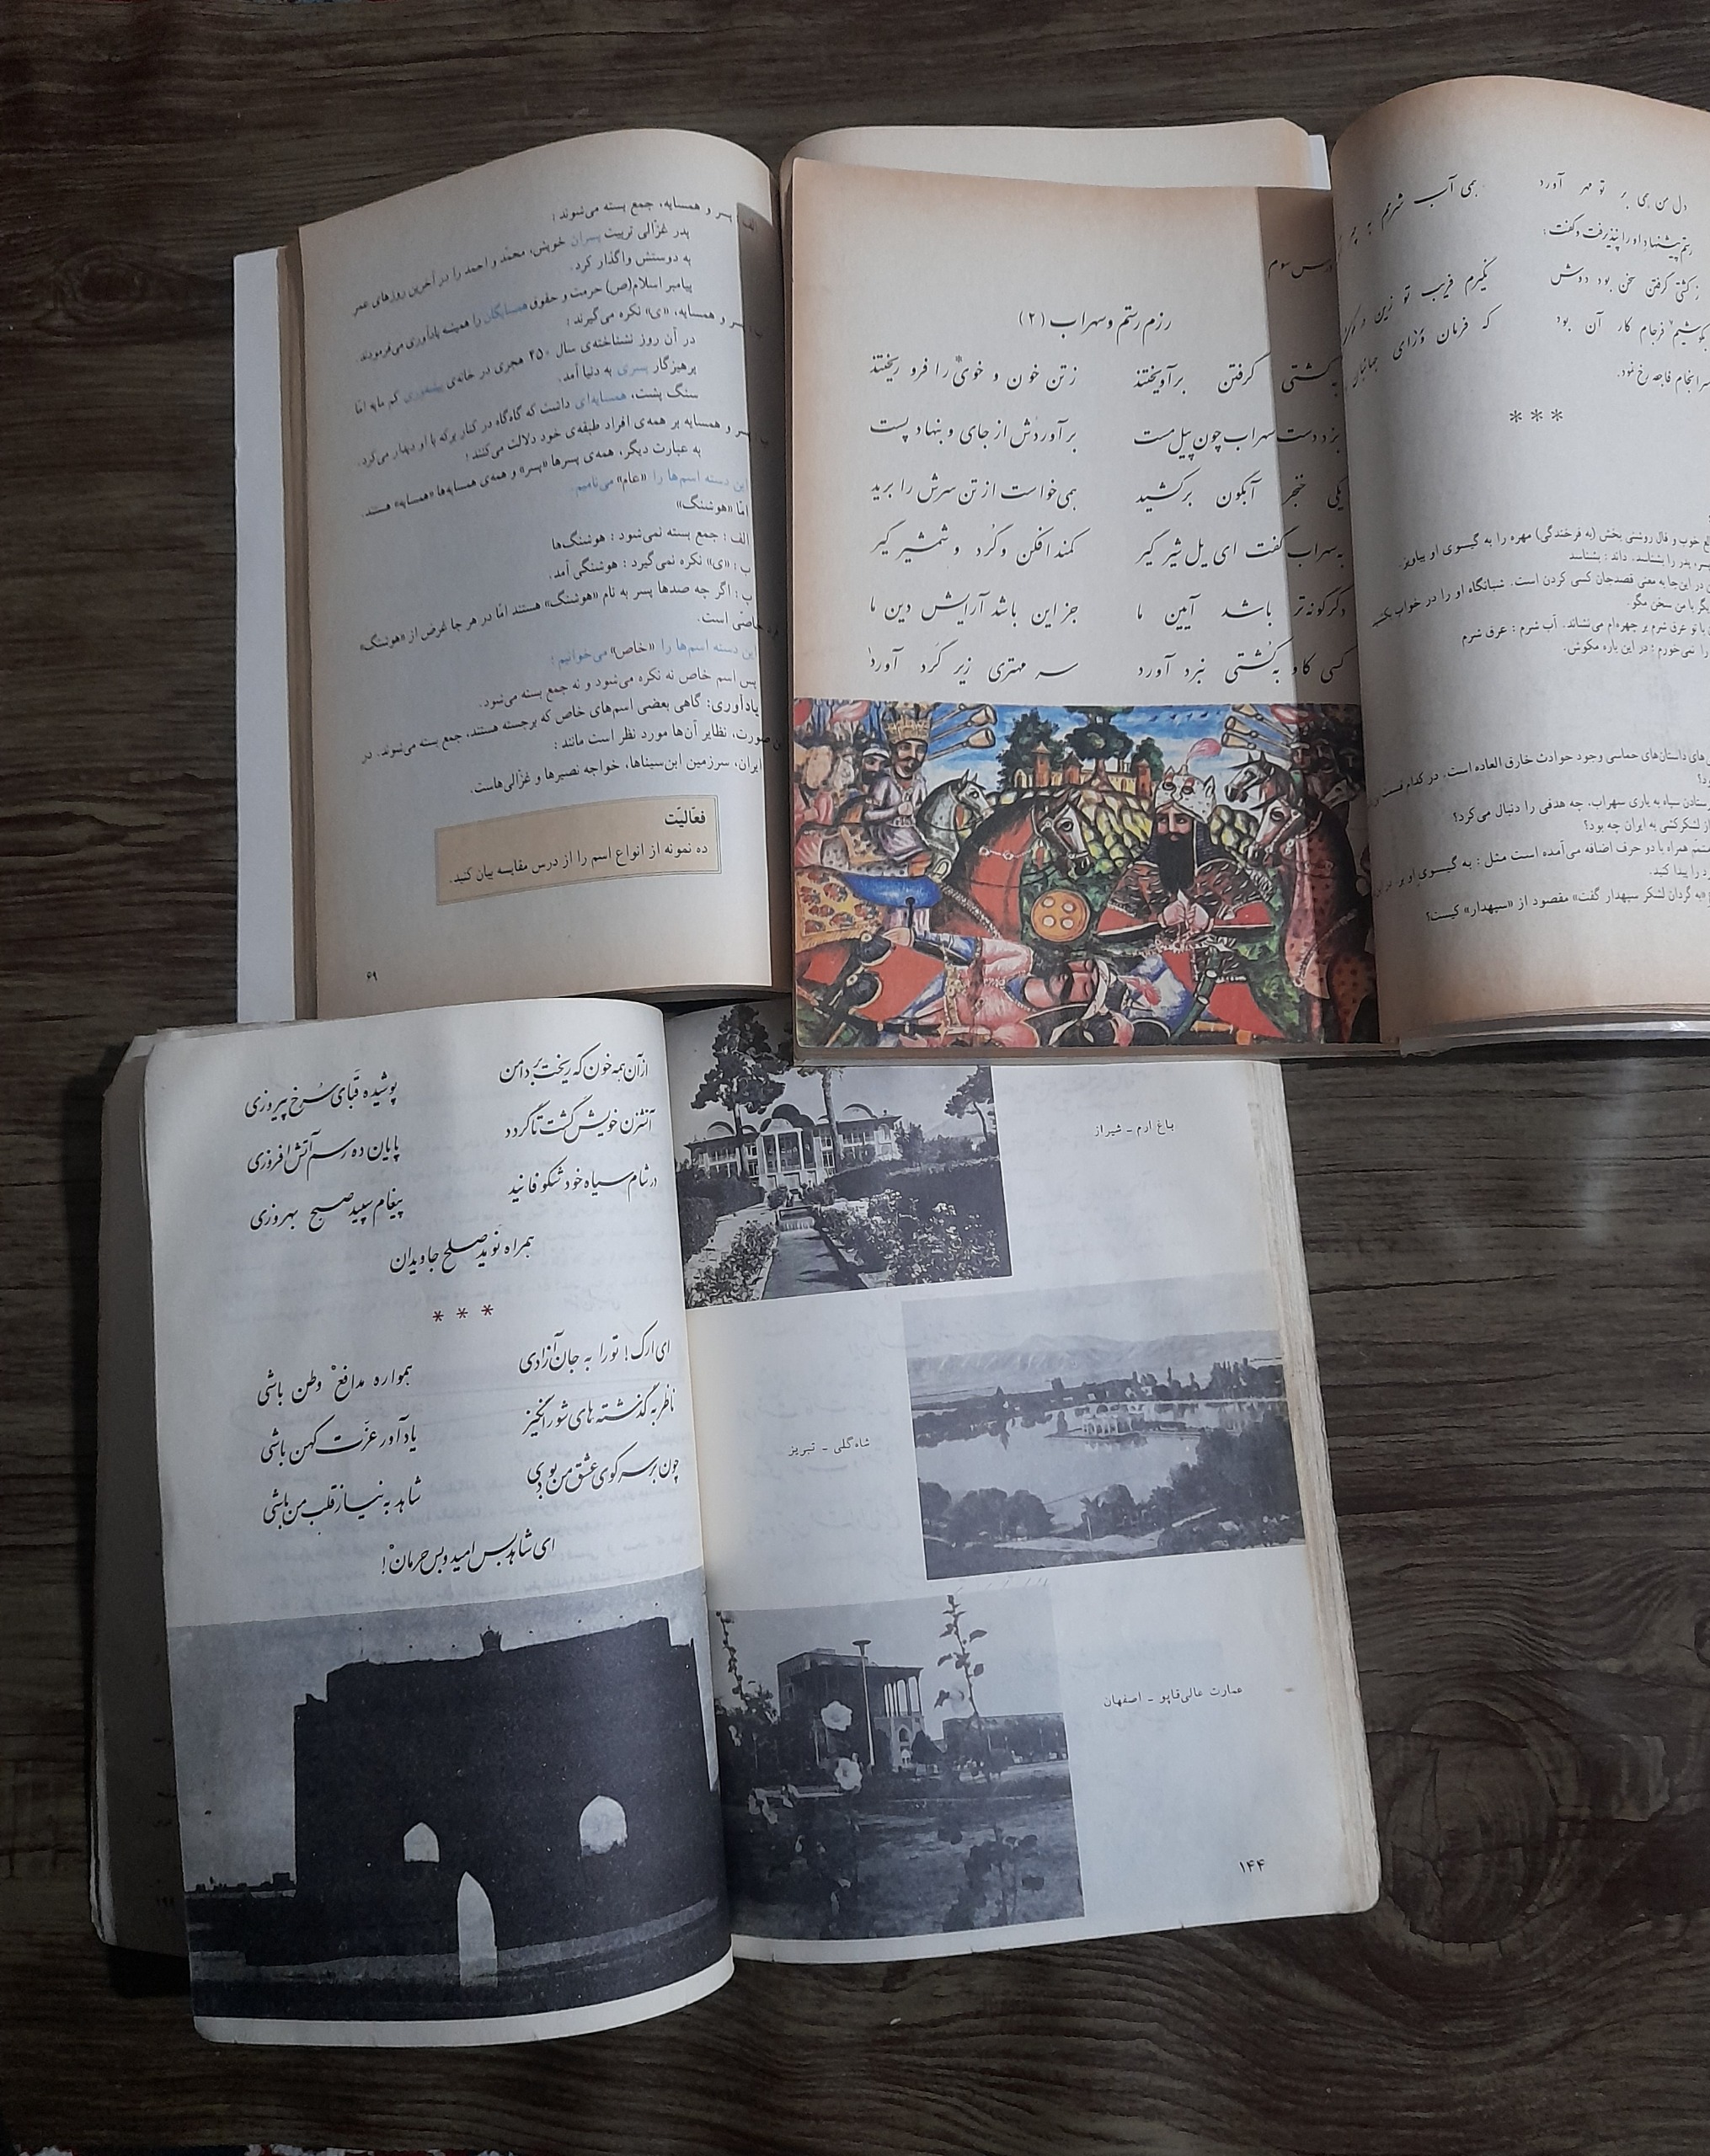 پسر و همسایه، جمع بسته می‌شوند :
پدر غزّالی تربیت پسران خویش، محمّد و احمد را در آخرین روزهای عمر
به دوستش واگذار کرد.
پیامبر اسلام(ص) حرمت و حقوق همسایگان را همیشه یادآوری می‌فرمودند.
و همسایه، «ی» نکره می‌گیرند :
در آن روز نشناخته‌ی سال ۴۵۰ هجری در خانه‌ی پیشه‌وری کم مایه امّا
پرهیزگار پسری به دنیا آمد.
سنگ پشت، همسایه‌ای داشت که گاه‌گاه در کنار برکه با او دیدار می‌کرد.
پسر و همسایه بر همه‌ی افراد طبقه‌ی خود دلالت می‌کنند؛
به عبارت دیگر، همه‌ی پسرها «پسر» و همه‌ی همسایه‌ها «همسایه» هستند.
این دسته اسم‌ها را «عام» می‌نامیم.
امّا «هوشنگ»
الف : جمع بسته نمی‌شود : هوشنگ‌ها
ب : «ی» نکره نمی‌گیرد : هوشنگی آمد.
پ : اگر چه صدها پسر به نام «هوشنگ» هستند امّا در هر جا غرض از «هوشنگ»
خاصّی است.
این دسته اسم‌ها را «خاص» می‌خوانیم؛
پس اسم خاص نه نکره می‌شود و نه جمع بسته می‌شود.
یادآوری: گاهی بعضی اسم‌های خاص که برجسته هستند، جمع بسته می‌شوند. در
صورت، نظایر آن‌ها مورد نظر است مانند :
ایران، سرزمین ابن‌سیناها، خواجه نصیرها و غزّالی‌هاست.
فعّالیّت
ده نمونه از انواع اسم را از درس مقایسه بیان کنید.
۴۹
درس سوم
رزم رستم و سهراب (۲)
به کشتی گرفتن برآویختند ز تن خون و خوی* را فرو ریختند
بزد دست سهراب چون پیل مست برآوردش از جای و بنهاد پست
یکی خنجر آبگون برکشید همی خواست از تن سرش را برید
به سهراب گفت ای یل شیرگیر کمندافکن و گرد و شمشیرگیر
دگرگونه‌تر باشد آیین ما جز این باشد آرایش دین ما
کسی کاو به کشتی نبرد آورد سر مهتری زیر گرد آورد
دل من همی بر تو مهر آورد همی آب شرمم به چهر
رستم پیشنهاد او را نپذیرفت و گفت:
ز کشتی گرفتن سخن بود دوش نگیرم فریب تو زین در
بکوشیم فرجام کار آن بود که فرمان و رای جهانبان
سرانجام فاجعه رخ نمود.
***
خوب و فال روشنی بخش (به فرخندگی) مهره را به گیسوی او بیاویز.
پسر، پدر را بشناسد. داند : بشناسد
در این‌جا به معنی قصدجان کسی کردن است. شبانگاه او را در خواب بکشید
با من سخن مگو.
با تو عرق شرم بر چهره‌ام می‌نشاند. آب شرم : عرق شرم
را نمی‌خورم : در این باره مکوش.
های داستان‌های حماسی وجود حوادث خارق العاده است. در کدام قسمت
فرستادن سپاه به یاری سهراب، چه هدفی را دنبال می‌کرد؟
از لشکرکشی به ایران چه بود؟
متمّم همراه با دو حرف اضافه می‌آمده است مثل : به گیسوی او بر
را پیدا کنید.
«به گردان لشکر سپهدار گفت» مقصود از «سپهدار» کیست؟
از آن همه خون که ریخت بر دامن پوشیده قبای سرخ پیروزی
آتش‌زن خویش گشت تا گردد پایان ده رسم آتش افروزی
در شام سیاه خود شکوفانید پیغام سپید صبح بهروزی
همراه نوید صلح جاویدان
***
ای ارک! تو را به جان آزادی همواره مدافع وطن باشی
ناظر به گذشته‌های شورانگیز یادآور عزّت کهن باشی
چون بر سر کوی عشق من بودی شاهد به نیاز قلب من باشی
ای شاهد بس امید و بس حرمان!
باغ ارم ـ شیراز
شاه‌گلی ـ تبریز
عمارت عالی‌قاپو ـ اصفهان
۱۴۴